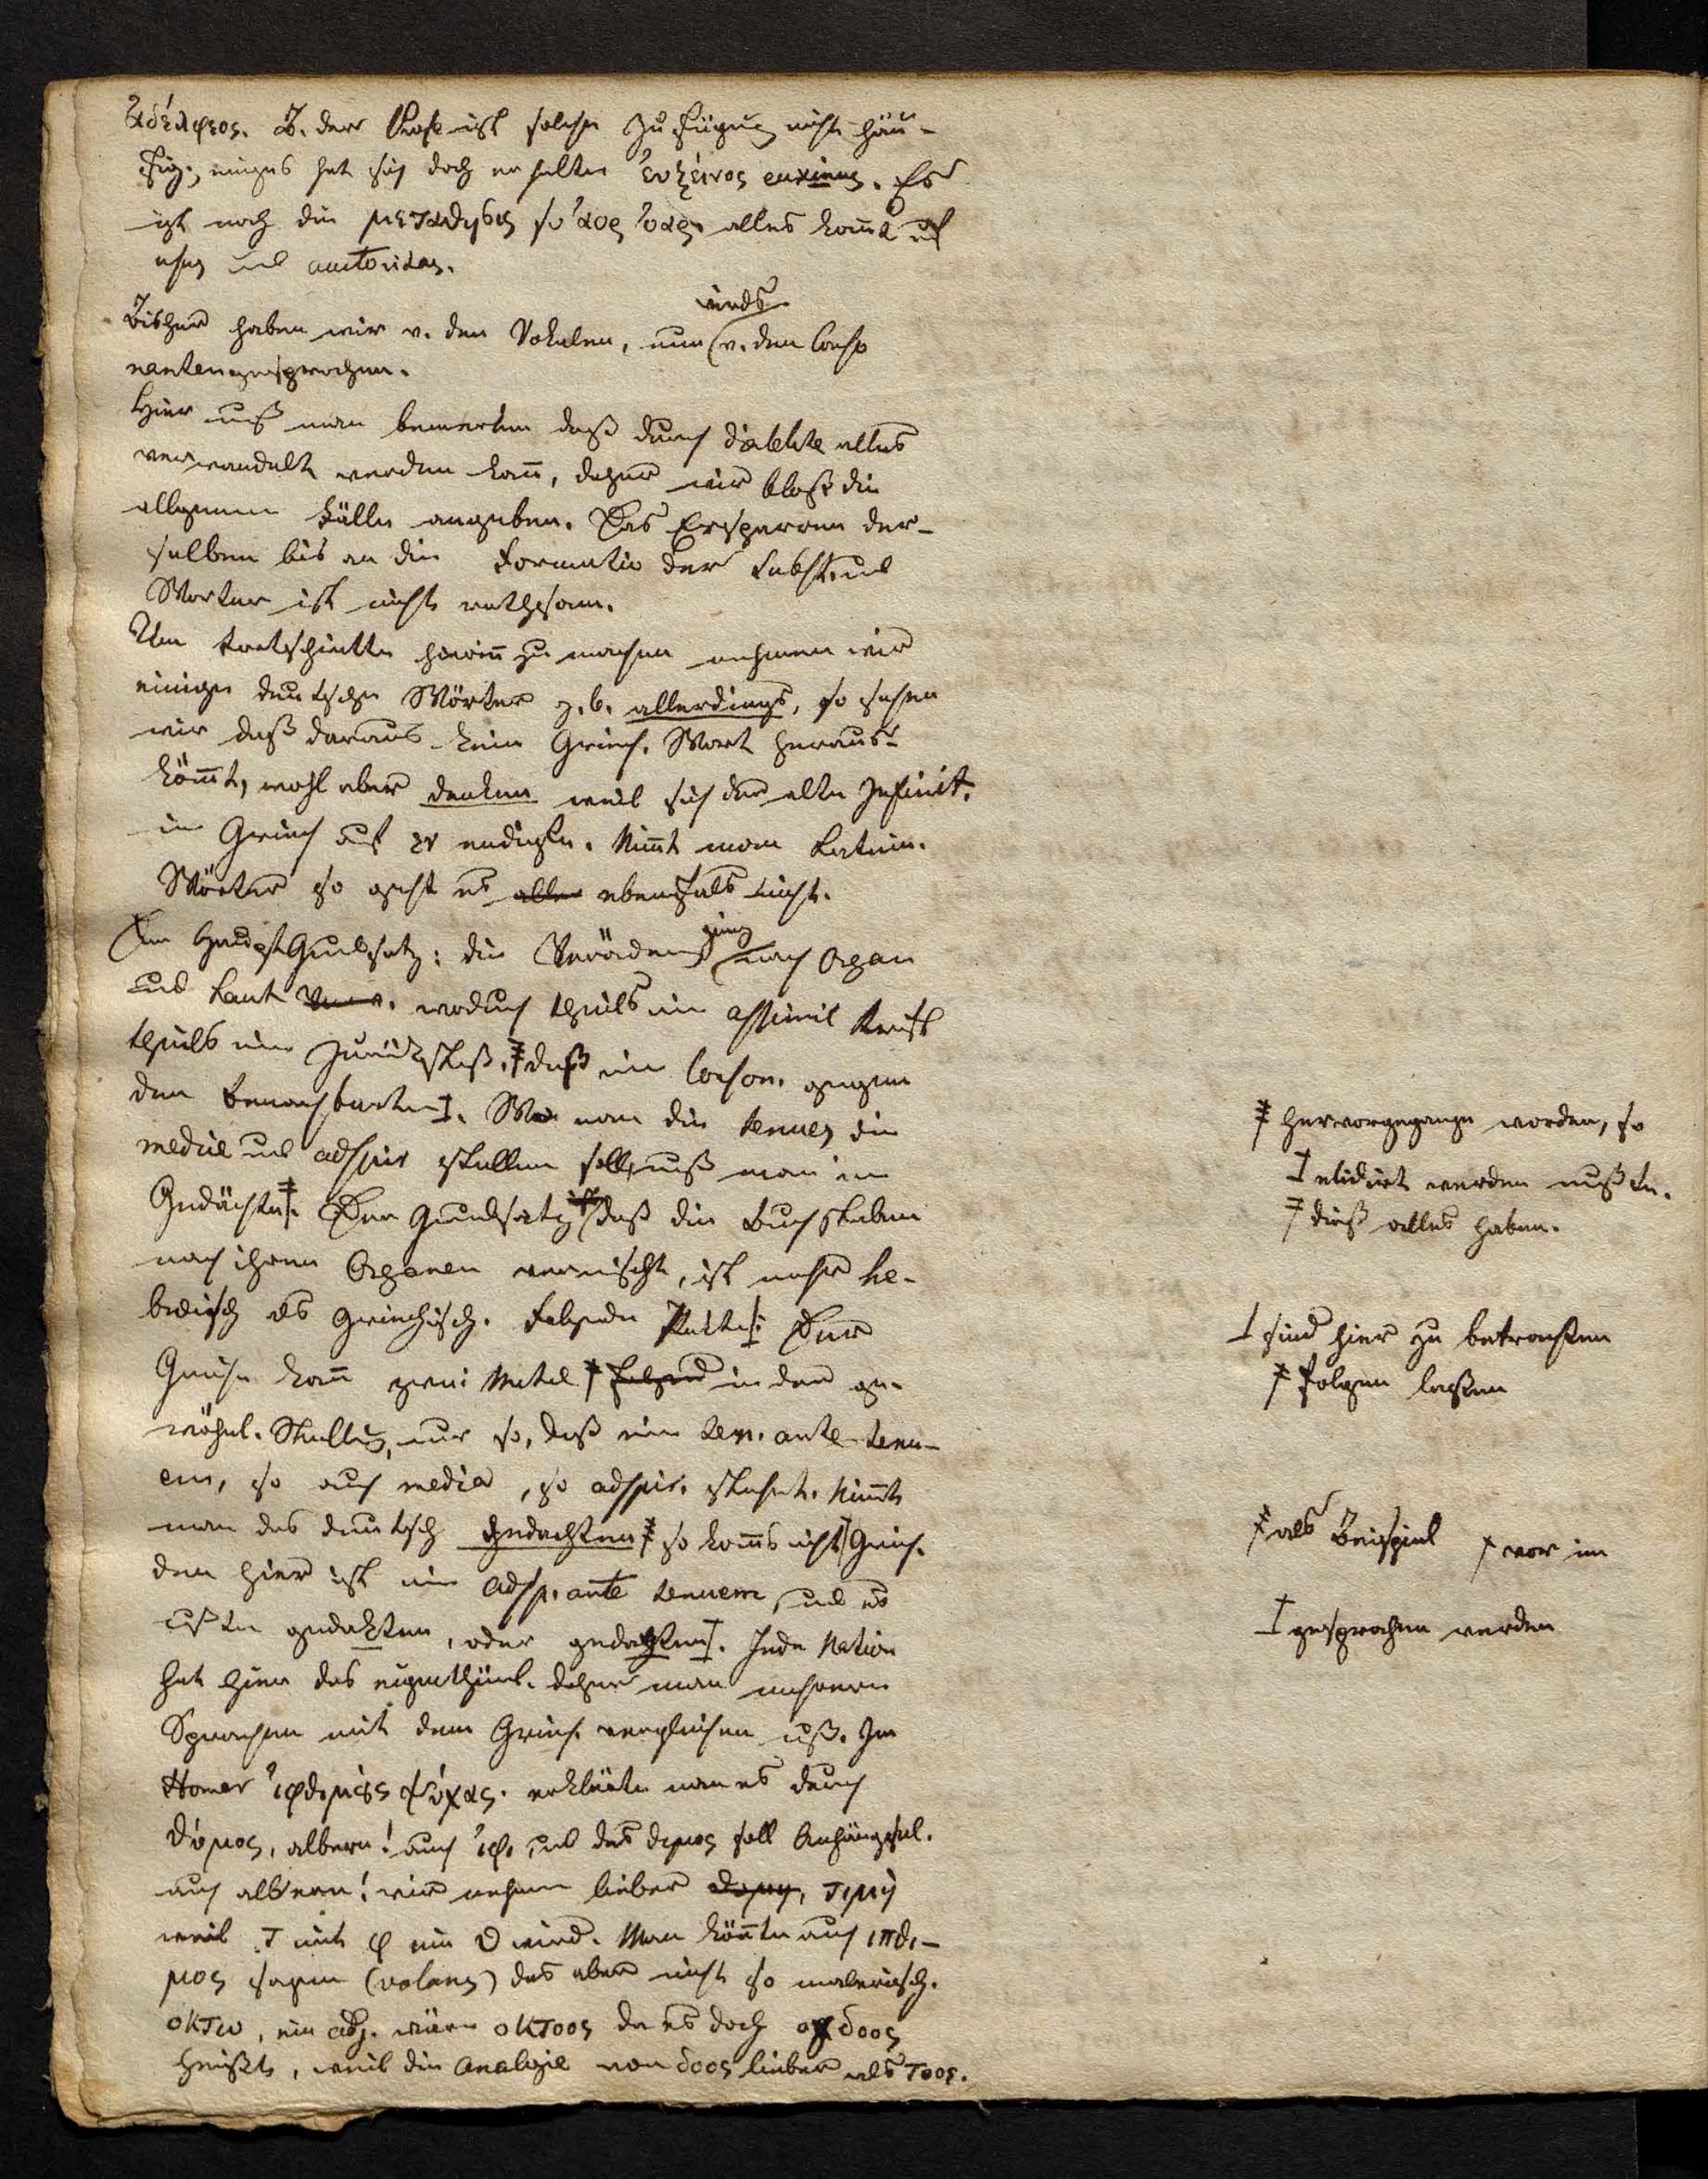 ἀδέλφεος. B. der Prose ist solche Zufügung nicht häu-
fig; einiges hat sich doch erhalten ἐυξεινος euxinus. Es
ist noch die μεταθησις so αορ ὀαρ. alles kommt auf
usus und autoritas.
Bisher haben wir v. den Vokalen, nun wirds v. den Conso
nanten gesprochen.
Hier muß man bemerken daß durch Dialekte alles
verwandelt werden kann, daher wir bloß die
allgemeine Fälle angeben. Das Ersparen der-
selben bis an die Formatio der Subst. und
Wörter ist nicht rathsam.
Um Fortschritte hierinn zu machen nehmen wir
einige deutsche Wörter z.b. allerdings, so sehen
wir daß daraus kein Griech. Wort heraus-
kömmt, wohl aber denken weil sich der alte Infinit.
im Griech auf εν endigte. Nimmt man Latein.
Wörter so geht es aber ebenfals nicht.
Der HauptGrundsatz: die Veränderung nach Organ
und Laut. wodurch theils ein assimil Kraft
theils eine Zurückstoß. daß ein Conson. gegen
den benachbarten. Wo man die tenues die
mediae und adspir stellen soll, muß man im
Gedächtn. Der Grundsatz ist daß die Buchstaben
nach ihren Organen vermischt, ist mehr he-
bräisch als griechisch. Folgende Punkte: Der
Grieche kann zwei Mutae folgend in der ge-
wöhnl. Stellung, nur so, daß eine ten. ante tenu-
em, so auch media, so adspir. stehet. Nimmt
man das deutsch gedachten so komts nicht Griech.
den hier ist eine adsp. ante tenuem, und es
müßte gedakten, oder gedachten. Jede Nation
hat hier das eigenthüml. daher man mehrere
Sprachen mit dem Griech. vergleichen muß. Im
Homer ἰφθιμȣς ψύχας. erklärte man es durch
θύμος, albern! auch ἰφι und das θιμος soll Anhängsel.
auch albern! wir nehmen lieber τιμὴ
weil τ mit φ ein θ wird. Man könnte auch ιπθι-
μος sagen (volens) das aber nicht so malerisch.
οκτω, ein adj. wäre οκτοος da es doch ογδοος
heißt, weil die Analogie von δοος lieber als τοος.
‡ hervorgegange worden, so
‡ elidirt werden mußte.
‡ dieß alles haben.
⊥ sind hier zu betrachten
‡ folgen laßen
‡ als Beispiel † vor im
‡ gesprochen werden